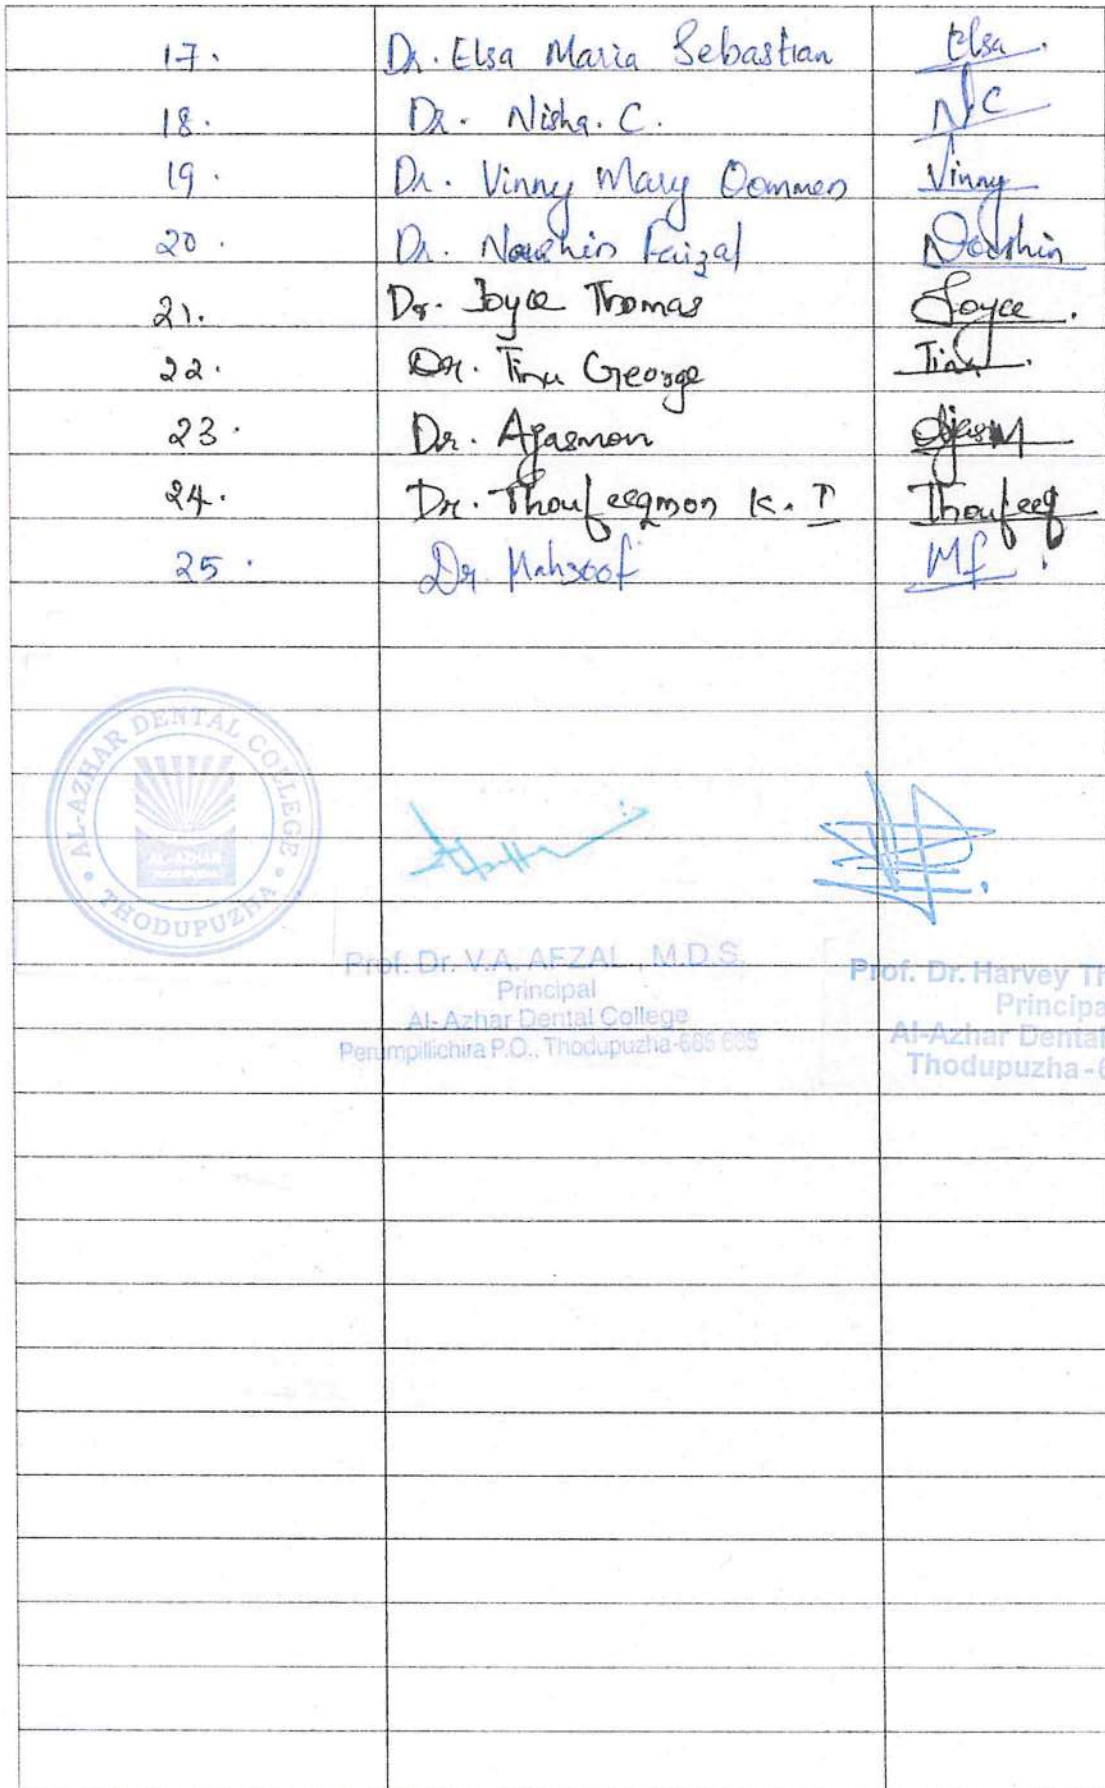 17. Dr. Elsa Maria Sebastian Elsa.
18. Dr. Nisha. C. N C
19. Dr. Vinny Mary Oommen Vinny
20. Dr. Noushin Faizal Noushin
21. Dr. Joyce Thomas Joyce.
22. Dr. Tinu George Tinu.
23. Dr. Ajasmon Ajasm
24. Dr. Thoufeeqmon K. T Thoufeeq
25. Dr Mahsoof Mf.
AL-AZHAR DENTAL COLLEGE
AL-AZHAR
THODUPUZHA
• THODUPUZHA •
Prof. Dr. V.A. AFZAL, M.D.S.
Principal
Al-Azhar Dental College
Perumpillichira P.O., Thodupuzha-685 605
Prof. Dr. Harvey Th
Principa
Al-Azhar Dental
Thodupuzha-6